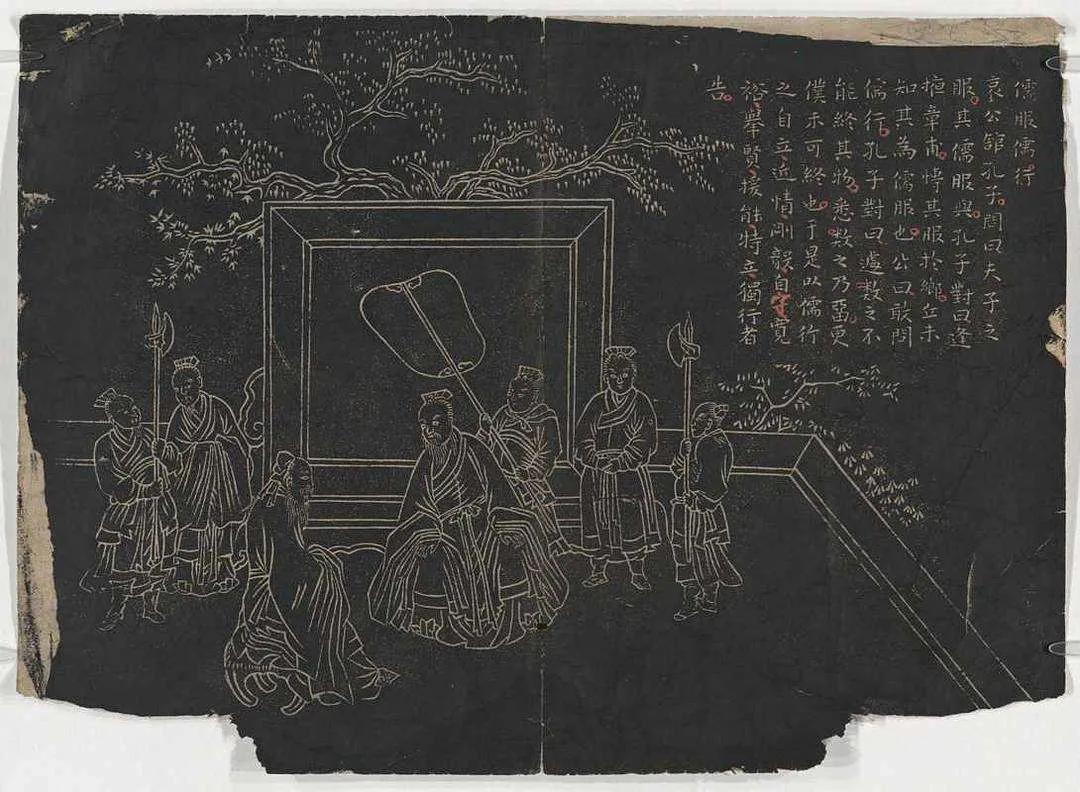 儒服儒行
哀公館孔子問曰夫子之
服其儒服與孔子對曰逢
掖章甫特其服於鄉丘未
知其為儒服也公曰敢問
儒行孔子對曰遽數之不
能終其物悉數之乃畱更
僕未可終也于是以儒行
之自立近情剛毅自守寬
裕舉賢援能特立獨行者
告